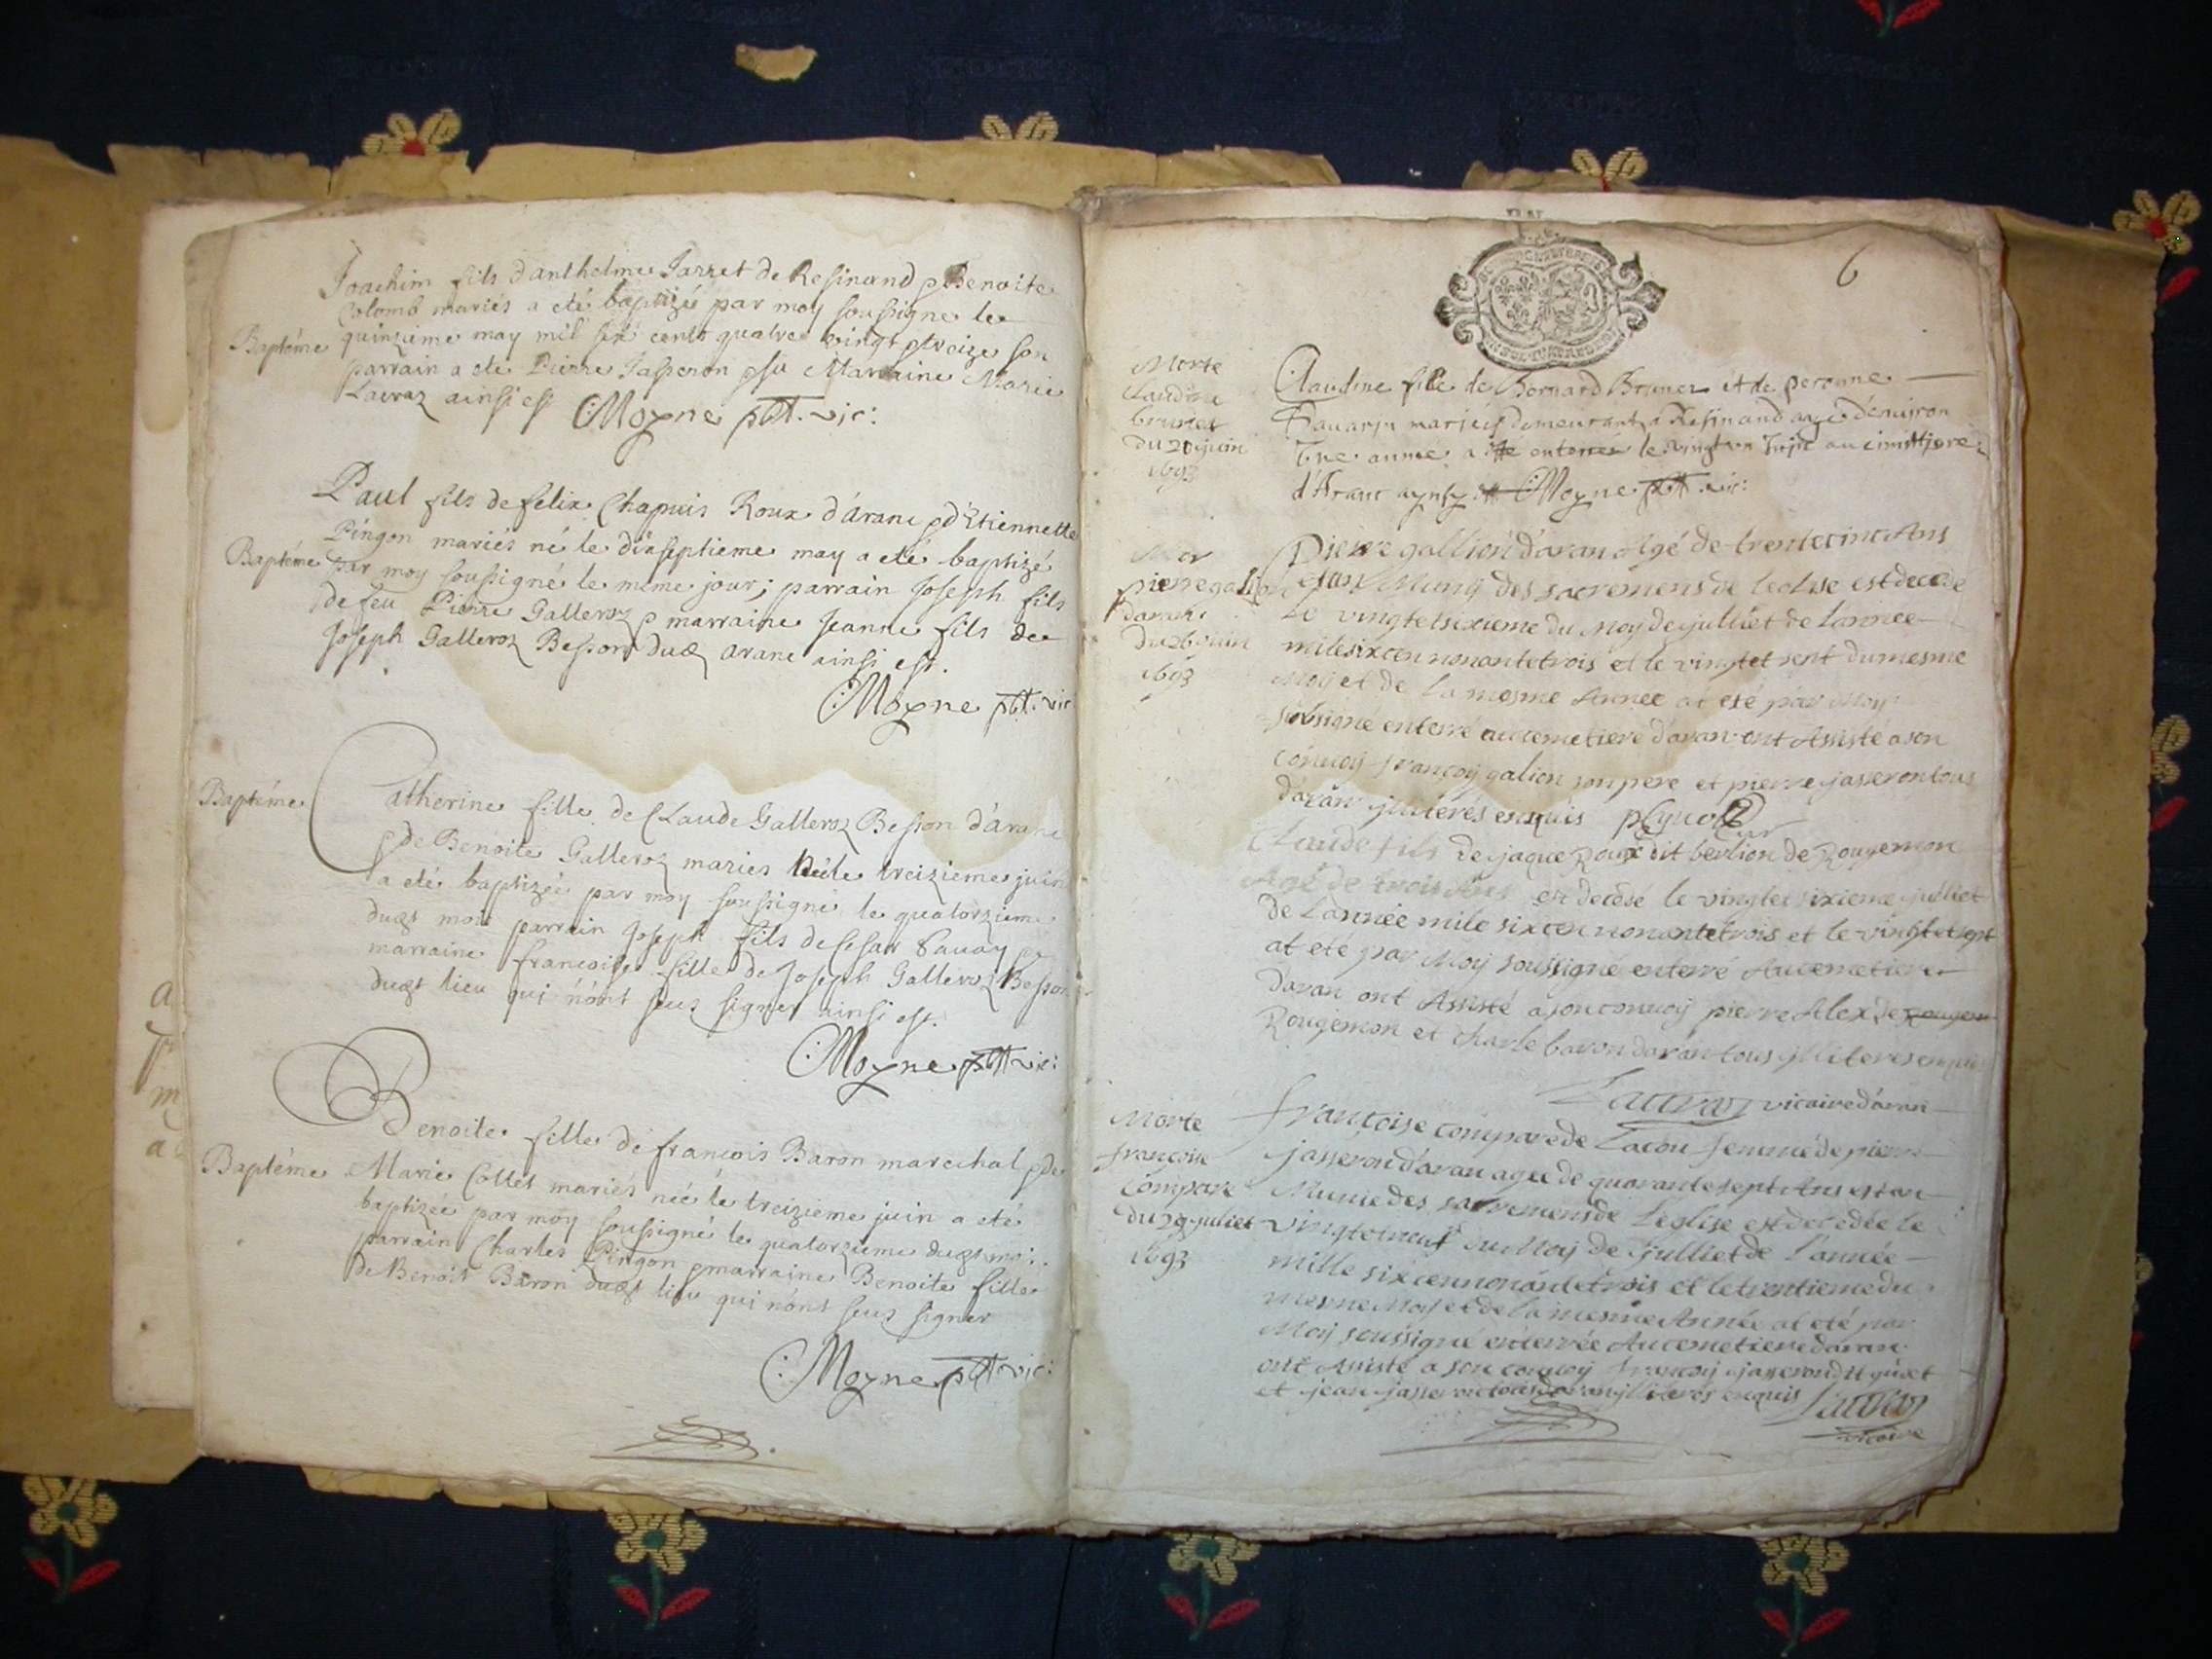 Joachim fils d'anthelme Jarret de Resinand & Benoite
Colomb mariés a eté baptizé par moy soussigné le
Baptéme quinzieme may mil six cents quatre vingt & treize son
parrain a eté Pierre Jasseron & sa Marraine Marie
Lacraz ainsi est Moyne pbt. vic:
Paul fils de felix Chapuis Roux d'arane & d'Etiennette
Pingon mariés né le dixseptieme may a eté baptizé
Baptéme par moy soussigné le méme jour; parrain Joseph fils
de feu Pierre Galleroz & marraine Jeanne fils de
Joseph Galleroz Besson dudt arane ainsi est.
Moyne pbt. vic
Baptéme Catherine fille de Claude Galleroz Besson d'arane
& de Benoite Galleroz mariés née le treizieme juin
a eté baptizée par moy soussigné le quatorzieme
dudt mois parrain Joseph fils de Cesar Savay &
marraine francoise fille de Joseph Galleroz Besson
dudt lieu qui n'ont sceus signer ainsi est.
Moyne pbt vic:
Benoite fille de francois Baron marechal & de
Baptéme Marie Collet mariés née le treizieme juin a eté
baptizée par moy soussigné le quatorzieme dudt moi.
parrain Charles Pingon & marraine Benoite fille
de Benoit Baron dudt lieu qui n'ont sceus signer
Moyne pbt vic:
6
Morte
Claudine
brunet
du 20 juin
1693
Claudine fille de Bernard Brunet et de peronne
Savarin mariés demeurant a Resinand agé d'environ
une annee a ete enterrée le vingt un juin au cimittiere
d'Aranc aynsy est Moyne pbt. vic:
Mor
pierre galion
daran
du 26 juin
1693
Pierre gallion d'aran Agé de trentecinc Ans
etant Muny des sacremens de leglise est decede
Le vingtetsixieme du Moy de julliet de lannee
mile six cen nonantetrois et le vingtet sept du mesme
Moy et de la mesme Annee at eté par Moy
subsigné enterré au cemetiere d'aran ont Assisté a son
convoy françoy galion son pere et pierre jasseron tous
d'aran jlliterés enquis
Claude fils de jaque Roux dit berlion de Rougemon
Agé de trois Ans est decésé le vingtet sixieme julliet
de Lannée mile six cen nonantetrois et le vingtet sept
at eté par Moy soussigné enterré Au cemetiere
daran ont Assisté a son convoy pierre Alex de
Rougemon et charle baron daran tous jlliteres enquis
Lacraz vicaire d'aran
Morte
françoise
Compare
du 29 juliet
1693
françoise compare de Lacou femme de pierre
jasseron d'aran agee de quarante sept Ans estan
Munie des sacremens de l'eglise est decedée le
vingtetneuf du Moy de julliet de l'année
mille six cen nonantetrois et le trentieme du
mesme Moy et de la mesme Année at eté par
Moy soussigné enterrée Au cemetiere daran
ont Assisté a son convoy françoy jasseron dit guiet
et jean jasseron tous d'aran jlliteres enquis Lacraz
vicaire